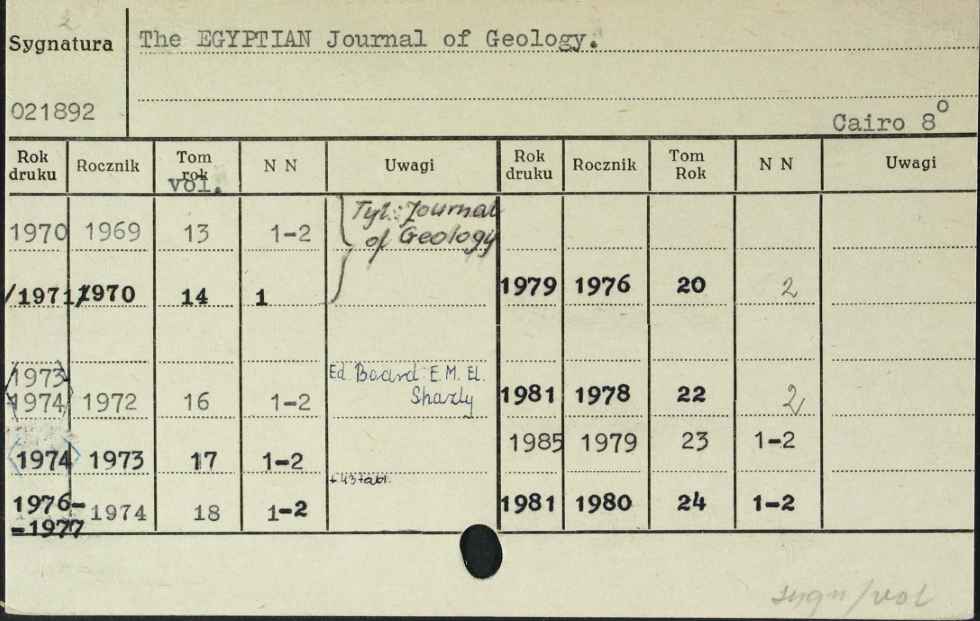 2
Sygnatura The EGYPTIAN Journal of Geology.
021892
Cairo 8o
Rok druku Rocznik Tom rok vol. N N Uwagi Rok druku Rocznik Tom Rok N N Uwagi
1970 1969 13 1-2 Tyt.: Journal of Geology
/1971/ 1970 14 1 1979 1976 20 2
/1973-1974/ 1972 16 1-2 Ed. Board: E.M. El. Shazly 1981 1978 22 2
1985 1979 23 1-2
1974 1973 17 1-2
+43 tabl.
1976-
-1977 1974 18 1-2 1981 1980 24 1-2
sygn/vol